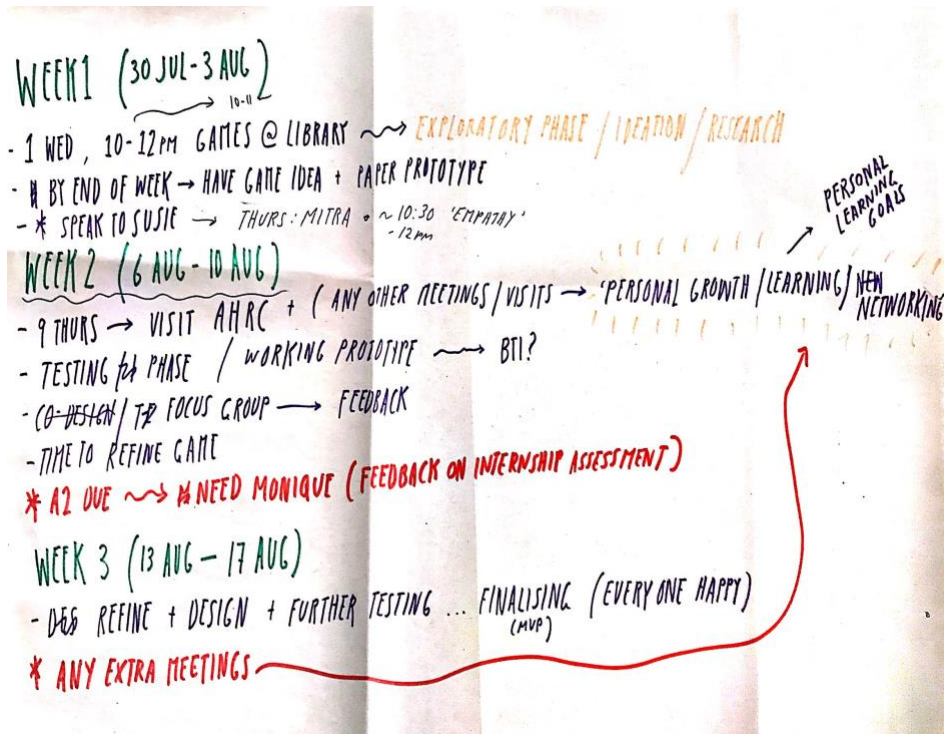 WEEK 1 (30 JUL - 3 AUG)
10-11
- 1 WED, 10-12PM GAMES @ LIBRARY → EXPLORATORY PHASE / IDEATION / RESEARCH
- BY END OF WEEK → HAVE GAME IDEA + PAPER PROTOTYPE
- * SPEAK TO SUSIE → THURS: MITRA • ~10:30 'EMPATAY'
- 12PM
PERSONAL
LEARNING
GOALS
WEEK 2 (6 AUG - 10 AUG)
- 9 THURS → VISIT AHRC + (ANY OTHER MEETINGS/VISITS → 'PERSONAL GROWTH / LEARNING / NEW
NETWORKING
- TESTING PHASE / WORKING PROTOTYPE → BTI?
- CO-DESIGN / FOCUS GROUP → FEEDBACK
- TIME TO REFINE GAME
* A2 DUE → NEED MONIQUE (FEEDBACK ON INTERNSHIP ASSESSMENT)
WEEK 3 (13 AUG - 17 AUG)
- DES REFINE + DESIGN + FURTHER TESTING ... FINALISING (EVERYONE HAPPY)
(MVP)
* ANY EXTRA MEETINGS